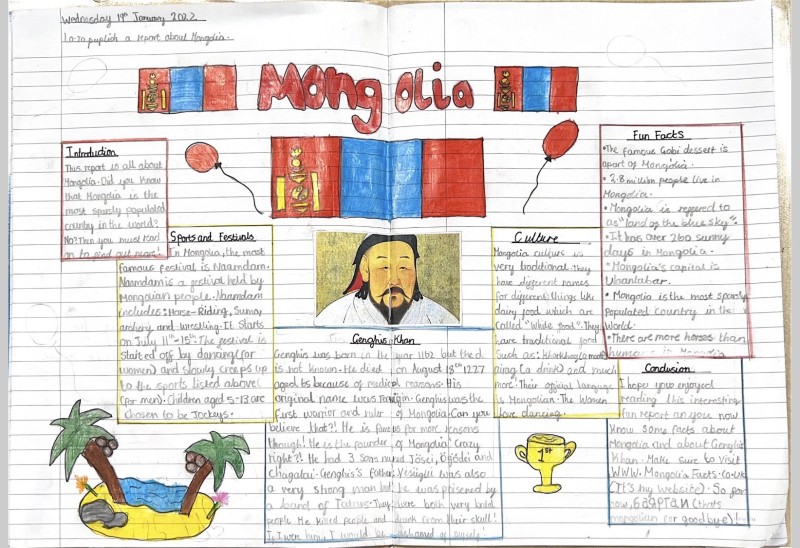 Wednesday 19th January 2022
Lo-To puplish a report about Mongolia.
Mongolia
Introduction
This report is all about
Mongolia. Did you know
that Mongolia is the
most sparsly populated
country in the world?
No? Then you must read
on to find out more!
Sports and Festivals
In Mongolia, the most
famous festival is Naamdam.
Naamdam is a festival held by
Mongolian people. Naamdam
includes: Horse-Riding, Sumay
archery and wrestling. It starts
on July 11th-15th. The festival is
started off by dancing (for
women) and slowly creeps up
to the sports listed above
(for men). Children aged 5-13 are
chosen to be Jockeys.
Genghis Khan
Genghis was born in the year 1162 but the d.
is not known. He died on August 18th 1227
aged 65 because of medical reasons. His
original name was Temüjin. Genghis was the
first warrior and ruler of Mongolia. Can you
believe that?! He is famous for more reasons
though! He is the founder of Mongolia! Crazy
right?! He had 3 sons named Jösci, Ögödei and
Chagatai. Genghis's father Yesügii was also
a very strong man but he was poisened by
a band of Tatars. They were both very bold
people. He killed people and drank from their skull!
If I were him, I would be ashamed of myself!
Culture
Mongolia culture is
very traditional. They
have different names
for different things like
dairy food which are
called "White food". They
have traditional food
such as: Khorkhog (a meat)
airag (a drink) and much
more. Their official language
is Mongolian. The Women
love dancing.
Fun Facts
•The famous Gobi dessert is
apart of Mongolia.
• 2.8 million people live in
Mongolia.
• Mongolia is reffered to
as "land of the blue sky".
• It has over 260 sunny
days in Mongolia.
•Mongolia's capital is
Ulantabar.
• Mongolia is the most sparsly
populated country in the
World.
•There are more horses than
humans in Mongolia
Conclusion
I hope you enjoyed
reading this interesting
fun report an you now
know some facts about
Mongolia and about Genghis
Khan. Make sure to visit
WWW. Mongolia Facts. Co.uk
(It's my website). So for
now, баяртай (thats
mongolian for goodbye)!
1st